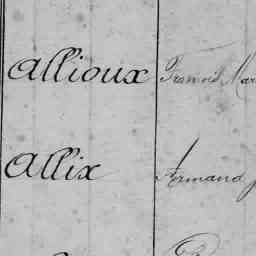 Allioux François Mar
Allix Armand J